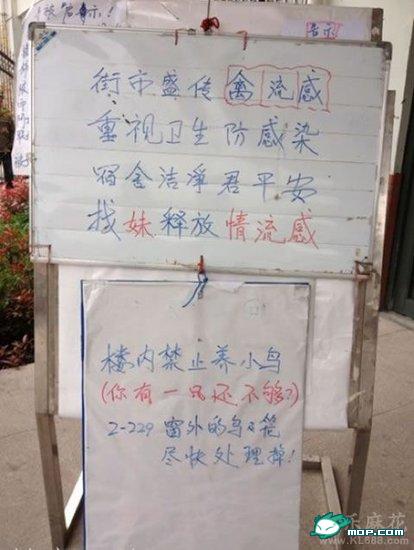 告示
街市盛传禽流感
重视卫生防感染
宿舍洁净君平安
找妹释放情流感
楼内禁止养小鸟
(你有一只还不够?)
2-229 窗外的鸟笼
尽快处理掉!
乐麻花
www.KL688.com
MOP.com